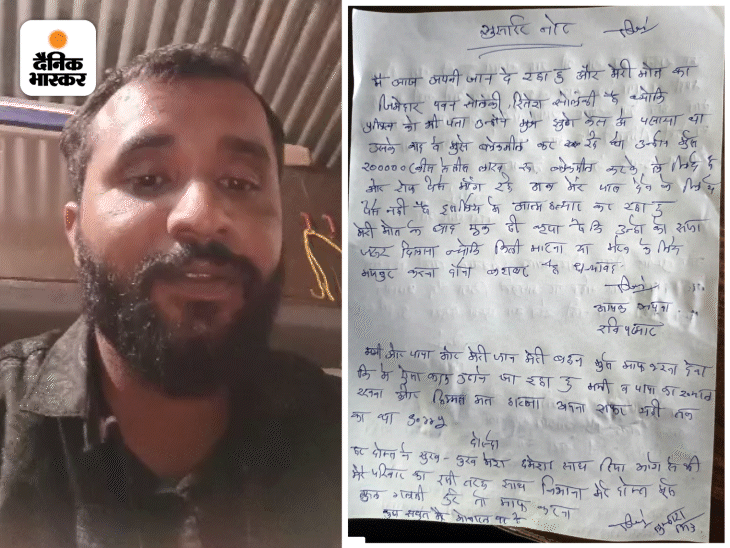 दैनिक
भास्कर
सुसाईट नोट
मैं आज अपनी जान दे रहा हु और मेरी मोत का
जिमेदार पवन सोलंकी, रितेश सोलंकी है क्योकि
को भी पता उन्होने मुझे झुठे केस मे फसाया था
उसके बाद वे मुझे ब्लेकमील कर रहे थे उन्होने मुझ
2000000 (बीस लाख रु. ब्लेकमील करके ले लिये है
और रोज पैसा मांग रहे अब मेरे पास देने के लिये
पैसे नही है इसलिये मे आत्म हत्या कर रहा हु
मेरी मोत के बाद मुझ ही कहना है कि उन्हो को सजा
जरूर दिलाना क्योकि किसी को मरने के लिये
मजबुर करना धन्यवाद
आपका अपना
रवि
मम्मी और पापा और मेरी जान मेरी बहन मुझे माफ करना देना
कि मे ऐसा कदम उठाने जा रहा हु मम्मी व पापा का ध्यान
रखना और हिम्मत मत हारना अपना साथ यही तक
का था sorry
दोस्तो
हर दोस्त ने सुख-दुख मेरा हमेशा साथ दिया आगे भी
मेरे परिवार का इसी तरह साथ निभाना मेरे दोस्त मुझसे
कोई गलती हुई तो माफ करना
सब सबूत मेरे मोबाईल पर है